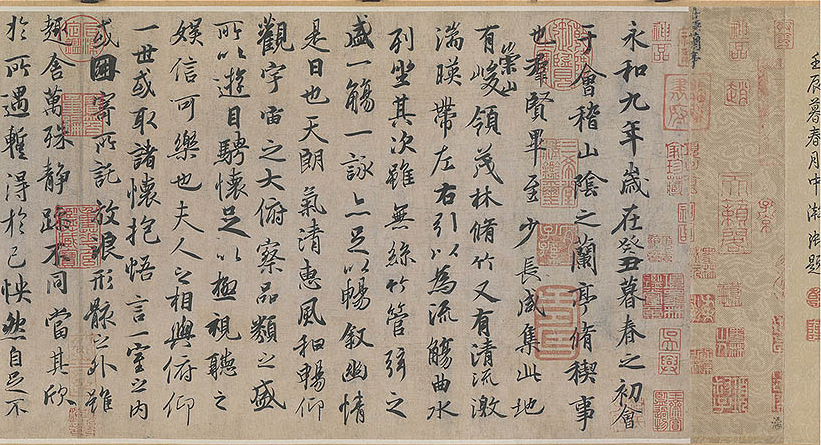 壬辰暮春月中
神品
神品
永和九年歲在癸丑暮春之初會
于會稽山陰之蘭亭脩稧事
也羣賢畢至少長咸集此地
有崇山峻領茂林脩竹又有清流激
湍暎帶左右引以為流觴曲水
列坐其次雖無絲竹管弦之
盛一觴一詠亦足以暢敘幽情
是日也天朗氣清惠風和暢仰
觀宇宙之大俯察品類之盛
所以遊目騁懷足以極視聽之
娛信可樂也夫人之相與俯仰
一世或取諸懷抱悟言一室之內
或因寄所託放浪形骸之外雖
趣舍萬殊靜躁不同當其欣
於所遇蹔得於己怏然自足不